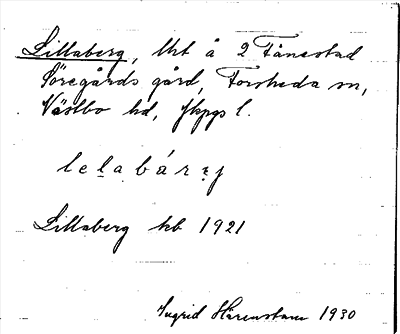 Lillaberg, lht å 2 Tånestad
Söregårds gård, Forsheda sn,
Västbo hd, Jkpgs l.
lelabárɛj
Lillaberg hb 1921
Ingrid Härenstam 1930